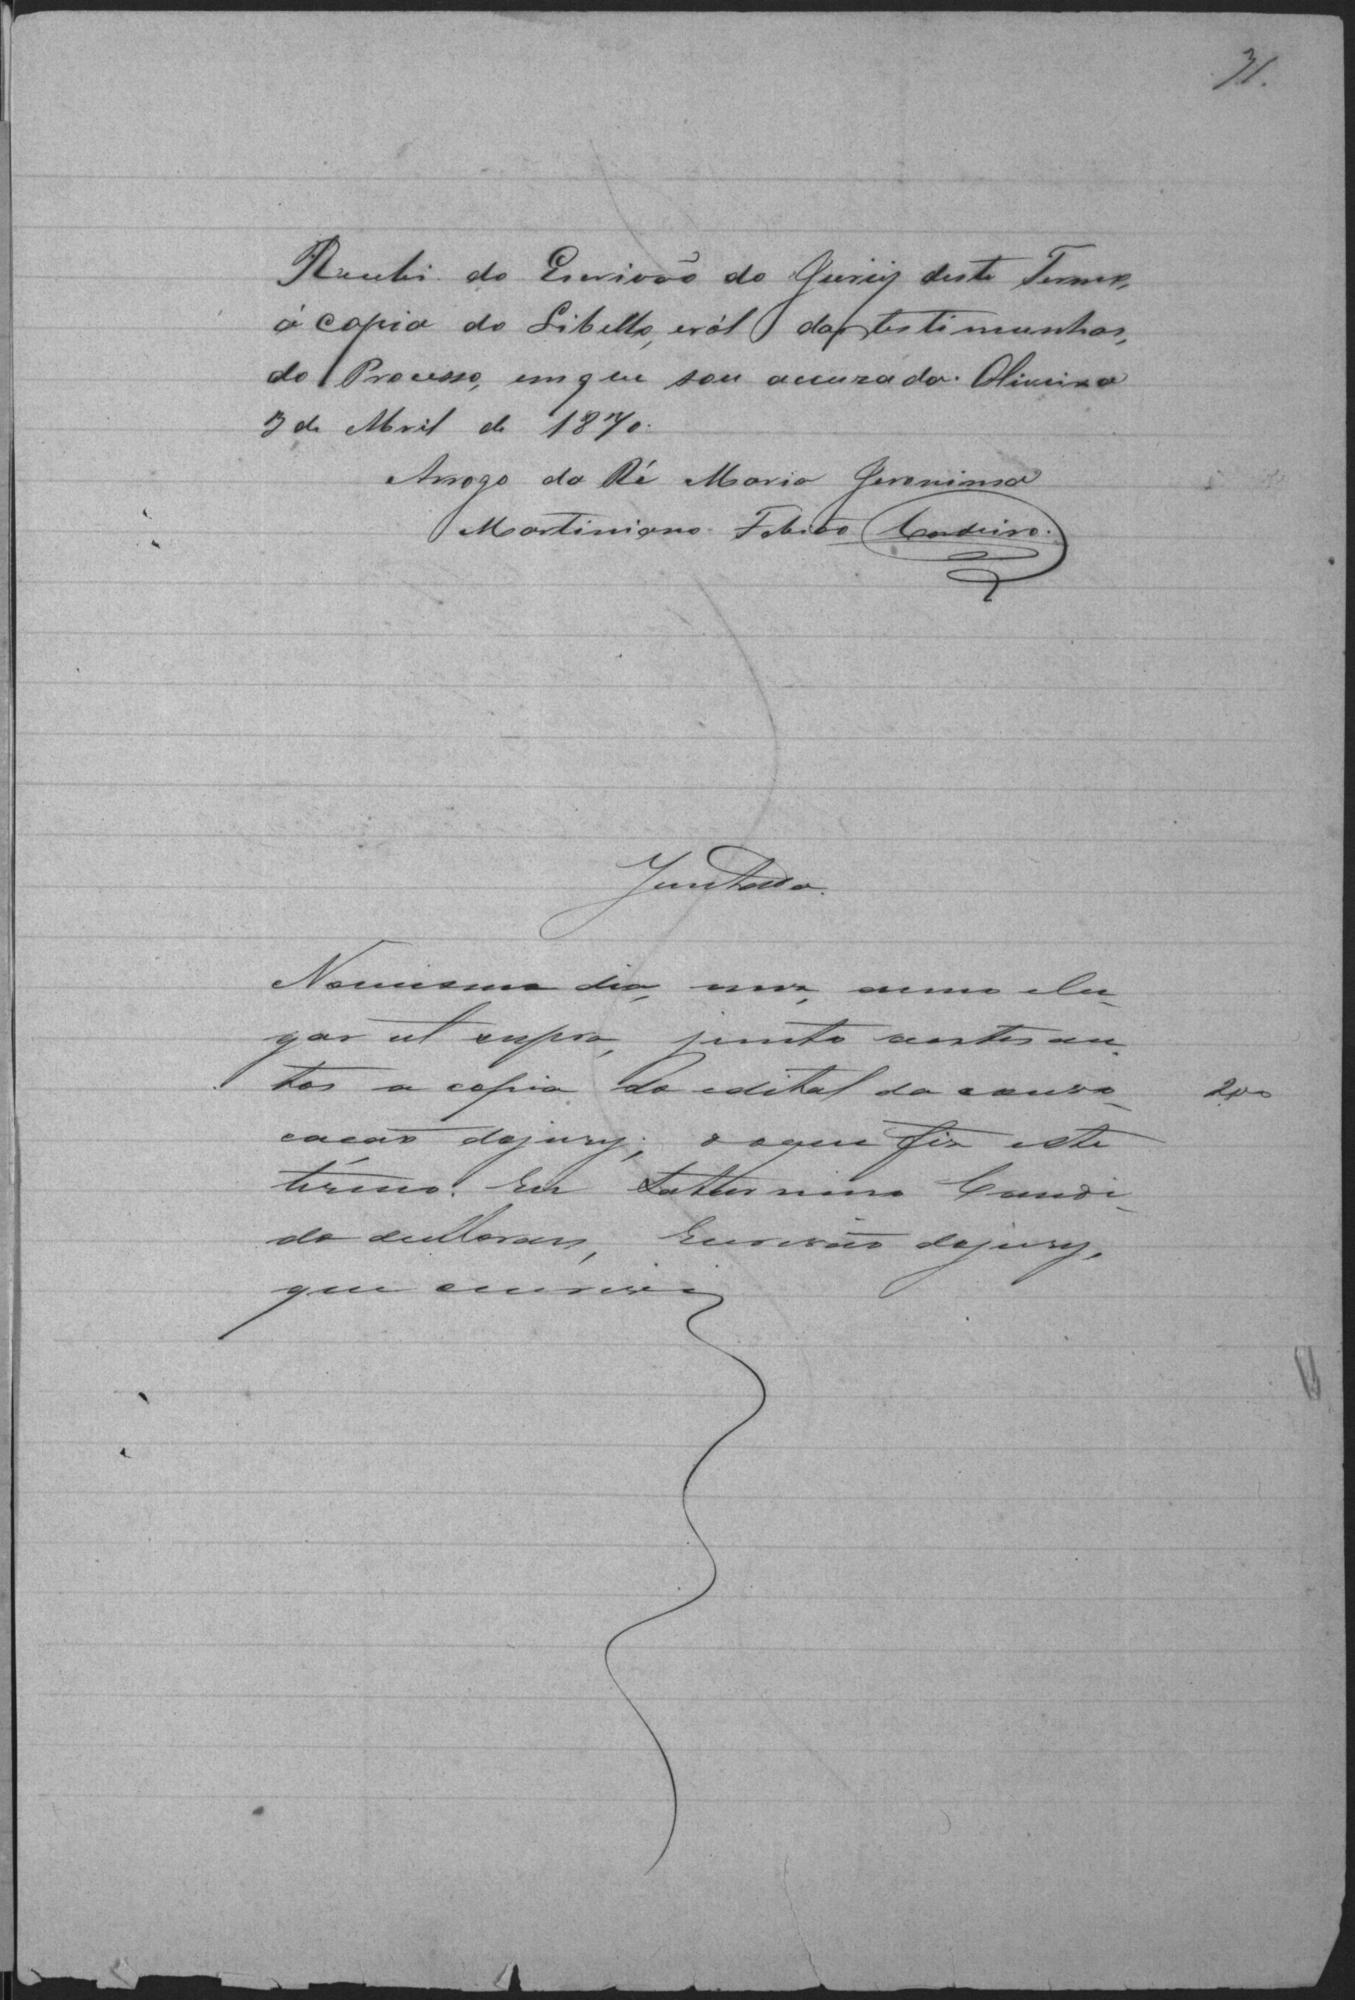 31.
Recebi do Escrivão do Jury deste Termo,
a copia do Libello, eról das testimunhas,
do Processo, emque sou accuzada. Oliveira
3 de Abril de 1870.
Arrogo da Ré Maria Jeronima
Martiniano Fabião Cordeiro.
Juntada.
Nomesmo dia, mez, anno elu-
gar ut supra, junto aestes au-
tos a copia do edital da convo- 200
cacão dojury; doque fiz este
têrmo. Eu Saturnino Candi-
do de Moraes, Escrivão dojury,
que escrevi